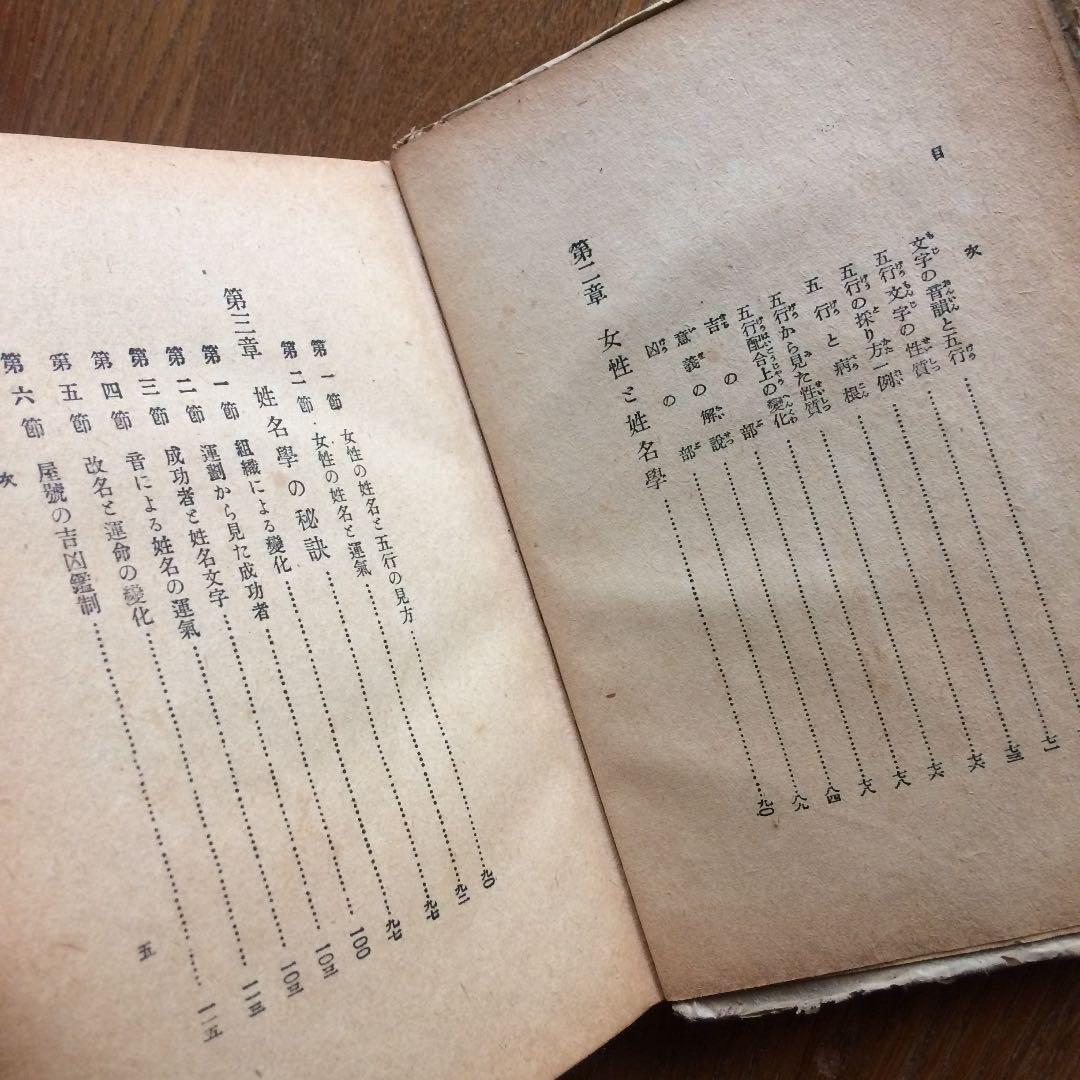 目次
文字の音韻と五行
五行文字の性質……七一
五行の採り方一例……七三
五行と病根……七六
五行から見た性質……七六
五行配合上の變化……七八
吉の部……七八
意義の解說……八四
凶の部……八九
第二章 女性と姓名學……九〇
第一節 女性の姓名と五行の見方……九〇
第二節 女性の姓名と運氣……九二
第三章 姓名學の秘訣……九七
第一節 組織による變化……九七
第二節 運劃から見た成功者……一〇〇
第三節 成功者と姓名文字……一〇三
第四節 音による姓名の運氣……一〇三
第五節 改名と運命の變化……一一三
第六節 屋號の吉凶鑑制……一一五
次
五